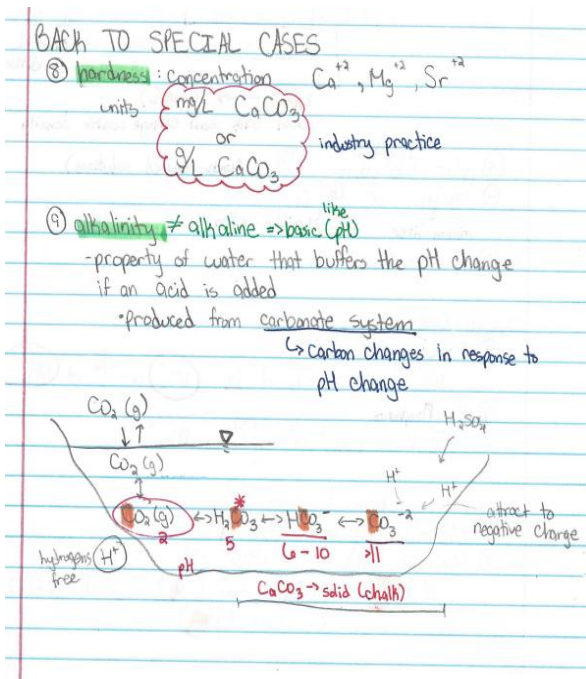 BACK TO SPECIAL CASES
⑧ hardness : concentration Ca⁺², Mg⁺², Sr⁺²
units mg/L CaCO₃
or
g/L CaCO₃
industry practice
⑨ alkalinity ≠ alkaline => basic (pH)
like
-property of water that buffers the pH change
if an acid is added
•produced from carbonate system
↳ carbon changes in response to
pH change
CO₂ (g)
↓↑
CO₂ (g)
↕
H₂SO₄
H⁺
H⁺
CO₂ (g) ↔ H₂CO₃ ↔ HCO₃⁻ ↔ CO₃⁻²
*
attract to
negative charge
2 5 6-10 >11
hydrogens
free
H⁺
pH
CaCO₃ → solid (chalk)